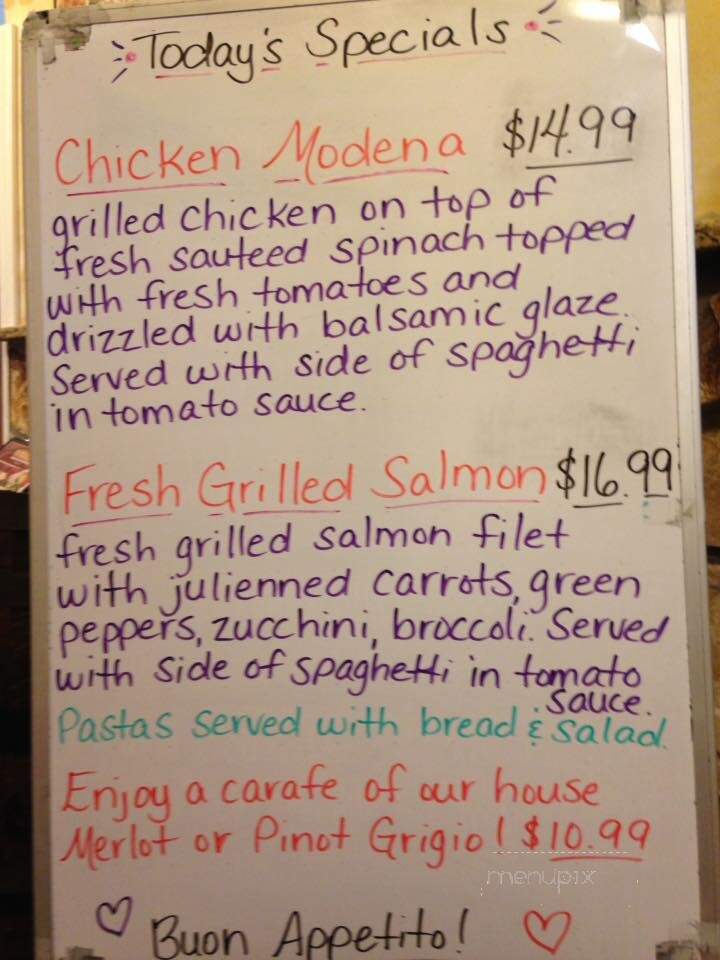 Today's Specials
Chicken Modena $14.99
grilled chicken on top of
fresh sauteed spinach topped
with fresh tomatoes and
drizzled with balsamic glaze.
Served with side of spaghetti
in tomato sauce.
Fresh Grilled Salmon $16.99
fresh grilled salmon filet
with julienned carrots, green
peppers, zucchini, broccoli. Served
with side of spaghetti in tomato
sauce.
Pastas served with bread & salad.
Enjoy a carafe of our house
Merlot or Pinot Grigio! $10.99
menupix
Buon Appetito!